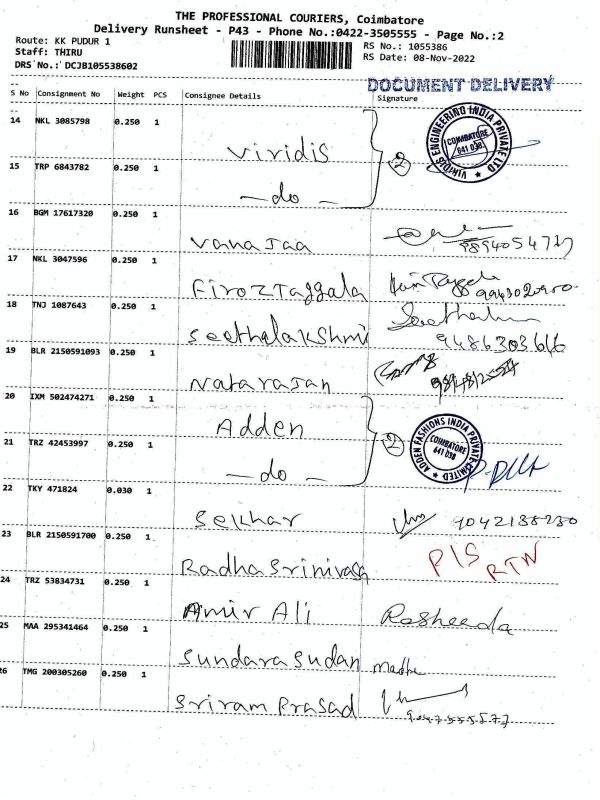 THE PROFESSIONAL COURIERS, Coimbatore
Delivery Runsheet - P43 - Phone No.:0422-3505555 - Page No.:2
Route: KK PUDUR 1
Staff: THIRU
DRS No.: DCJB105538602
RS No.: 1055386
RS Date: 08-Nov-2022
DOCUMENT DELIVERY
S No Consignment No Weight PCS Consignee Details Signature
14 NKL 3085798 0.250 1
Viridis
VIRIDIS ENGINEERING INDIA PRIVATE LTD
COIMBATORE
641 038
2
15 TRP 6843782 0.250 1
— do —
16 BGM 17617320 0.250 1
Vanajaa
17 NKL 3047596 0.250 1
Firoz Taggala
18 TNJ 1087643 0.250 1
Seethalakshmi
9486303616
19 BLR 2150591093 0.250 1
Natarajan
20 IXM 502474271 0.250 1
Adden
ADDEN FASHIONS INDIA PRIVATE LIMITED
COIMBATORE
641 038
2
21 TRZ 42453997 0.250 1
— do —
22 TKY 471824 0.030 1
Sekhar
23 BLR 2150591700 0.250 1
Radha Srinivasa
P/S
RTN
24 TRZ 53834731 0.250 1
Amir Ali
Rasheeda
25 MAA 295341464 0.250 1
Sundara Sudan
26 TMG 200305260 0.250 1
Sriram Prasad